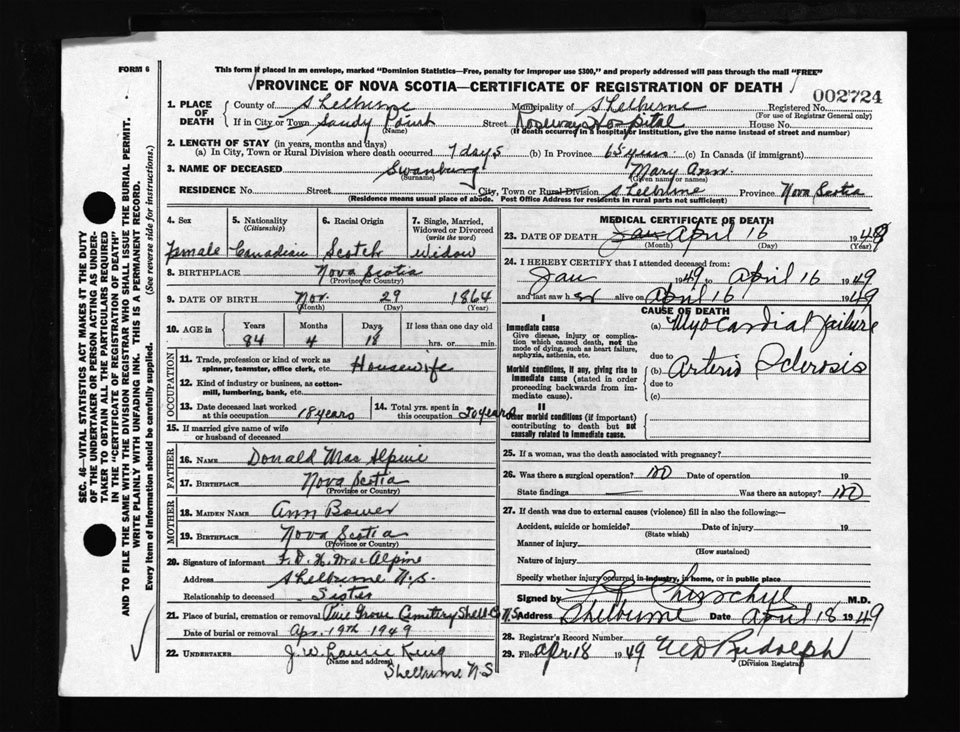 FORM 6
This form if placed in an envelope, marked "Dominion Statistics—Free, penalty for improper use $300," and properly addressed will pass through the mail "FREE"
PROVINCE OF NOVA SCOTIA—CERTIFICATE OF REGISTRATION OF DEATH
002724
1. PLACE OF DEATH County of Shelburne Municipality of Shelburne Registered No.
(For use of Registrar General only)
If in City or Town Sandy Point Street Roseway Hospital House No.
(Name) (If death occurred in a hospital or institution, give the name instead of street and number)
2. LENGTH OF STAY (in years, months and days)
(a) In City, Town or Rural Division where death occurred 7 days (b) In Province 65 years (c) In Canada (if immigrant)
3. NAME OF DECEASED Swanburg Mary Ann.
(Surname) (Given name or names)
RESIDENCE No. Street City, Town or Rural Division Shelburne Province Nova Scotia
(Residence means usual place of abode. Post Office Address for residents in rural parts not sufficient)
4. Sex 5. Nationality (Citizenship) 6. Racial Origin 7. Single, Married, Widowed or Divorced (write the word)
female Canadian Scotch Widow
8. BIRTHPLACE Nova Scotia
(Province or Country)
9. DATE OF BIRTH Nov. 29 1864
(Month) (Day) (Year)
10. AGE in Years Months Days If less than one day old
84 4 18 hrs. or min.
OCCUPATION
11. Trade, profession or kind of work as spinner, teamster, office clerk, etc. Housewife
12. Kind of industry or business, as cotton-mill, lumbering, bank, etc.
13. Date deceased last worked at this occupation 18 years 14. Total yrs. spent in this occupation 50 years
15. If married give name of wife or husband of deceased
FATHER
16. NAME Donald Mac Alpine
17. BIRTHPLACE Nova Scotia
(Province or Country)
MOTHER
18. MAIDEN NAME Ann Bower
19. BIRTHPLACE Nova Scotia
(Province or Country)
20. Signature of informant F. D. H. Mac Alpine
Address Shelburne N.S.
Relationship to deceased Sister
21. Place of burial, cremation or removal Pine Grove Cemetery Shelb Co N.S.
Date of burial or removal Apr. 19th 1949
22. UNDERTAKER J. W. Laurie King
(Name and address)
Shelburne N-S
MEDICAL CERTIFICATE OF DEATH
23. DATE OF DEATH Jan April 16 1949
(Month) (Day) (Year)
24. I HEREBY CERTIFY that I attended deceased from:
Jan 1949 to April 16 1949
and last saw her alive on April 16 1949
CAUSE OF DEATH
I
Immediate cause
Give disease, injury or complication which caused death, not the mode of dying, such as heart failure, asphyxia, asthenia, etc.
(a) Myocardial failure
due to
Morbid conditions, if any, giving rise to immediate cause (stated in order proceeding backwards from immediate cause).
(b) Arterio Sclerosis
due to
(c)
II
Other morbid conditions (if important) contributing to death but not causally related to immediate cause.
25. If a woman, was the death associated with pregnancy?
26. Was there a surgical operation? no Date of operation 19
State findings — Was there an autopsy? no
27. If death was due to external causes (violence) fill in also the following:—
Accident, suicide or homicide? Date of injury 19
(State which)
Manner of injury
(How sustained)
Nature of injury
Specify whether injury occurred in industry, in home, or in public place
Signed by Churchill M.D.
Address Shelburne Date April 18 1949
28. Registrar's Record Number
29. Filed Apr 18 1949 Rudolph
(Division Registrar)
SEC. 46—VITAL STATISTICS ACT MAKES IT THE DUTY
OF THE UNDERTAKER OR PERSON ACTING AS UNDER-
TAKER TO OBTAIN ALL THE PARTICULARS REQUIRED
IN THE "CERTIFICATE OF REGISTRATION OF DEATH"
AND TO FILE THE SAME WITH THE DIVISION REGISTRAR WHO SHALL ISSUE THE BURIAL PERMIT.
WRITE PLAINLY WITH UNFADING INK. THIS IS A PERMANENT RECORD.
Every item of information should be carefully supplied. (See reverse side for instructions.)